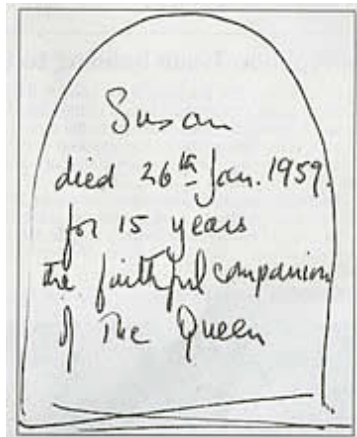 Susan
died 26th Jan. 1959.
for 15 years
the faithful companion
of The Queen